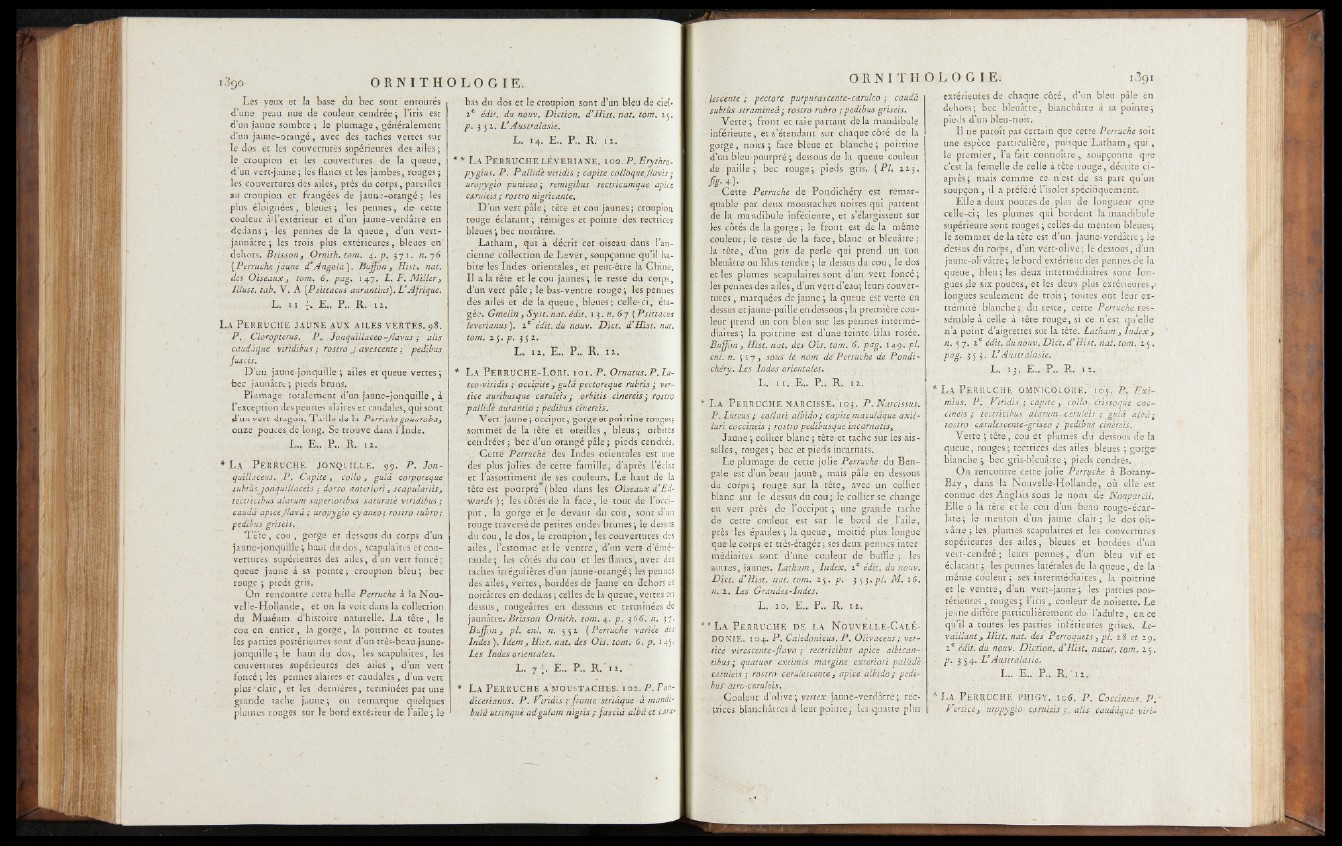 1390 ORNITHOLOGIE.
Les yeux et la base du bec sont entourés
d'une peau nue de couleur cendrée; l'iris est
d'un jaune sombre; le plumage, généralement
d'un jaune-orangé, avec des taches vertes sur
le dos et les couvertures supérieures des ailes;
le croupion et les couvertures de la queue,
d'un vert-jaune; les flancs et les jambes, rouges;
les couvertures des ailes, près du corps, pareilles
au croupion et frangées de jaune-orangé; les
plus éloignées, bleues; les pennes, de cette
couleur à l'extérieur et d'un jaune-verdâtre en
dedans; les pennes de la queue, d'un vert-
jaunâtre; les trois plus extérieures, bleues en
dehors. Brisson, Ornith. tom. 4. p. 371. n. 76
(Perruche jaune d'Angola). Buffon, Hist. nat.
des Oiseaux, tom. 6. pag. 147. L. F. Miller,
Illust. tab. V. A (Psittacus aurantius). L'Afrique.
L. 11 ½. E.. P.. R. 12.
LA PERRUCHE JAUNE AUX AILES VERTES. 98.
P. Cloropterus. P. Jonquillaceo-flavus; alis
caudâque viridibus; rostro flavescente; pedibus
fuscis.
D'un jaune-jonquille; ailes et queue vertes;
bec jaunâtre; pieds bruns.
Plumage totalement d'un jaune-jonquille, à
l'exception des pennes alaires et caudales, qui sont
d'un vert-dragon. Taille de la Perriche gouaroba,
onze pouces de long. Se trouve dans l'Inde.
L.. E.. P.. R. 12.
* LA PERRUCHE JONQUILLE. 99. P. Jon-
quillaceus. P. Capite, collo, gulâ corporeque
subtùs jonquillaceis; dorso anteriori, scapulariis,
tectricibus alarum superioribus saturatè viridibus;
caudâ apice flavâ; uropygio cyaneo; rostro rubro;
pedibus griseis.
Tête, cou, gorge et dessous du corps d'un
jaune-jonquille; haut du dos, scapulaires et cou-
vertures supérieures des ailes, d'un vert foncé;
queue jaune à sa pointe; croupion bleu; bec
rouge; pieds gris.
On rencontre cette belle Perruche à la Nou-
velle-Hollande, et on la voit dans la collection
du Muséum d'histoire naturelle. La tête, le
cou en entier, la gorge, la poitrine et toutes
les parties postérieures sont d'un très-beau jaune-
jonquille; le haut du dos, les scapulaires, les
couvertures supérieures des ailes, d'un vert
foncé; les pennes alaires et caudales, d'un vert
plus clair, et les dernières, terminées par une
grande tache jaune; on remarque quelques
plumes rouges sur le bord extérieur de l'aile; le
bas du dos et le croupion sont d'un bleu de ciel.
2e édit. du nouv. Diction. d'Hist. nat. tom. 25.
p. 352. L'Australasie.
L. 14. E.. P.. R. 12.
** LA PERRUCHE LÉVERIANE. 100. P. Erythro-
pygius. P. Pallidè viridis; capite colloque flavis;
uropygio puniceo; remigibus rectricumque apice
cæruleis; rostro nigricante.
D'un vert pâle; tête et cou jaunes; croupion
rouge éclatant; rémiges et pointe des rectrices
bleues; bec noirâtre.
Latham, qui a décrit cet oiseau dans l'an-
cienne collection de Lever, soupçonne qu'il ha-
bite les Indes orientales, et peut-être la Chine.
Il a la tête et le cou jaunes; le reste du corps,
d'un vert pâle; le bas-ventre rouge; les pennes
des ailes et de la queue, bleues; celle-ci, éta-
gée. Gmelin, Syst. nat. édit. 13. n. 67 (Psittacus
leverianus). 2e édit. du nouv. Dict. d'Hist. nat.
tom. 25. p. 352.
L. 12. E.. P.. R. 12.
* LA PERRUCHE-LORI. 101. P. Ornatus. P. Lu-
teo-viridis; occipite, gulâ pectoreque rubris; ver-
tice auribusque cæruleis; orbitis cinereis; rostro
pallidè aurantio; pedibus cinereis.
Vert jaune; occiput, gorge et poitrine rouges;
sommet de la tête et oreilles, bleus; orbites
cendrées; bec d'un orangé pâle; pieds cendrés.
Cette Perruche des Indes orientales est une
des plus jolies de cette famille, d'après l'éclat
et l'assortiment de ses couleurs. Le haut de la
tête est pourpré (bleu dans les Oiseaux d'Ed-
wards); les côtés de la face, le tour de l'occi-
put, la gorge et le devant du cou, sont d'un
rouge traversé de petites ondes brunes; le dessus
du cou, le dos, le croupion, les couvertures des
ailes, l'estomac et le ventre, d'un vert d'éme-
raude; les côtés du cou et les flancs, avec des
taches irrégulières d'un jaune-orangé; les pennes
des ailes, vertes, bordées de jaune en dehors et
noirâtres en dedans; celles de la queue, vertes en
dessus, rougeâtres en dessous et terminées de
jaunâtre. Brisson Ornith. tom. 4. p. 366. n. 37.
Buffon, pl. enl. n. 552 (Perruche variée des
Indes). Idem, Hist. nat. des Ois. tom. 6. p. 145.
Les Indes orientales.
L. 7 ½. E.. P.. R. 12.
* LA PERRUCHE A MOUSTACHES. 102. P. Pon-
dicerianus. P. Viridis; fronte striâque à mandi-
bulâ utrinquè ad gulam nigris; fasciâ albâ et cæru-
ORNITHOLOGIE. 1391
lescente; pectore purpurascente-cæruleo; caudâ
subtùs stramineâ; rostro rubro; pedibus griseis.
Verte; front et raie partant de la mandibule
inférieure, et s'étendant sur chaque côté de la
gorge, noirs; face bleue et blanche; poitrine
d'un bleu-pourpré; dessous de la queue couleur
de paille; bec rouge; pieds gris. (Pl. 225.
fig. 4).
Cette Perruche de Pondichéry est remar-
quable par deux moustaches noires qui partent
de la mandibule inférieure, et s'élargissent sur
les côtés de la gorge; le front est de la même
couleur; le reste de la face, blanc et bleuâtre;
la tête, d'un gris de perle qui prend un ton
bleuâtre ou lilas tendre; le dessus du cou, le dos
et les plumes scapulaires sont d'un vert foncé;
les pennes des ailes, d'un vert d'eau; leurs couver-
tures, marquées de jaune; la queue est verte en
dessus et jaune-paille en dessous; la première cou-
leur prend un ton bleu sur les pennes intermé-
diaires; la poitrine est d'une teinte lilas rosée.
Buffon, Hist. nat. des Ois. tom. 6. pag. 149. pl.
enl. n. 517, sous le nom de Perruche de Pondi-
chéry. Les Indes orientales.
L. 11. E.. P.. R. 12.
* LA PERRUCHE NARCISSE. 103. P. Narcissus.
P. Luteus; collari albido; capite maculâque axil-
lari coccineis; rostro pedibusque incarnatis.
Jaune; collier blanc; tête et tache sur les ais-
selles, rouges; bec et pieds incarnats.
Le plumage de cette jolie Perruche du Ben-
gale est d'un beau jaune, mais pâle en dessous
du corps; rouge sur la tête, avec un collier
blanc sur le dessus du cou; le collier se change
en vert près de l'occiput; une grande tache
de cette couleur est sur le bord de l'aile,
près les épaules; la queue, moitié plus longue
que le corps et très-étagée; ses deux pennes inter-
médiaires sont d'une couleur de buffle; les
autres, jaunes. Latham, Index. 2e édit. du nouv.
Dict. d'Hist. nat. tom. 25. p. 353. pl. M. 16.
n. 2. Les Grandes-Indes.
L. 10. E.. P.. R. 12.
** LA PERRUCHE DE LA NOUVELLE-CALÉ-
DONIE. 104. P. Caledonicus. P. Olivaceus; ver-
tice virescente-flavo; rectricibus apice albican-
tibus; quatuor extimis margine exteriori pallidè
cæruleis; rostro cærulescente, apice albido; pedi-
bus atro-cæruleis.
Couleur d'olive; vertex jaune-verdâtre; rec-
trices blanchâtres à leur pointe; les quatre plus
extérieures de chaque côté, d'un bleu pâle en
dehors; bec bleuâtre, blanchâtre à sa pointe;
pieds d'un bleu-noir.
Il ne paroît pas certain que cette Perruche soit
une espèce particulière, puisque Latham, qui,
le premier, l'a fait connoître, soupçonne que
c'est la femelle de celle à tête rouge, décrite ci-
après; mais comme ce n'est de sa part qu'un
soupçon, il a préféré l'isoler spécifiquement.
Elle a deux pouces de plus de longueur que
celle-ci; les plumes qui bordent la mandibule
supérieure sont rouges; celles du menton bleues;
le sommet de la tête est d'un jaune-verdâtre; le
dessus du corps, d'un vert-olive; le dessous, d'un
jaune-olivâtre; le bord extérieur des pennes de la
queue, bleu; les deux intermédiaires sont lon-
gues de six pouces, et les deux plus extérieures,
longues seulement de trois; toutes ont leur ex-
trémité blanche; du reste, cette Perruche res-
semble à celle à tête rouge, si ce n'est qu'elle
n'a point d'aigrettes sur la tête. Latham, Index,
n. 57. 2e édit. du nouv. Dict. d'Hist. nat. tom. 25.
pag. 353. L'Australasie.
L. 13. E.. P.. R. 12.
* LA PERRUCHE OMNICOLORE. 105. P. Exi-
mius. P. Viridis; capite, collo, crissoque coc-
cineis; tectricibus alarum cæruleis; gulâ albâ;
rostro cærulescente-griseo; pedibus cinereis.
Verte; tête, cou et plumes du dessous de la
queue, rouges; tectrices des ailes bleues; gorge
blanche; bec gris-bleuâtre; pieds cendrés.
On rencontre cette jolie Perruche à Botany-
Bay, dans la Nouvelle-Hollande, où elle est
connue des Anglais sous le nom de Nonpareil.
Elle a la tête et le cou d'un beau rouge-écar-
late; le menton d'un jaune clair; le dos oli-
vâtre; les plumes scapulaires et les couvertures
supérieures des ailes, bleues et bordées d'un
vert-cendré; leurs pennes, d'un bleu vif et
éclatant; les pennes latérales de la queue, de la
même couleur; ses intermédiaires, la poitrine
et le ventre, d'un vert-jaune; les parties pos-
térieures, rouges; l'iris, couleur de noisette. Le
jeune diffère particulièrement de l'adulte, en ce
qu'il a toutes les parties inférieures grises. Le-
vaillant, Hist. nat. des Perroquets, pl. 28 et 29.
2e édit. du nouv. Diction. d'Hist. natur. tom. 25.
p. 354. L'Australasie.
L.. E.. P.. R. 12.
* LA PERRUCHE PHIGY. 106. P. Coccineus. P.
Vertice, uropygio cæruleis; alis caudâque viri-